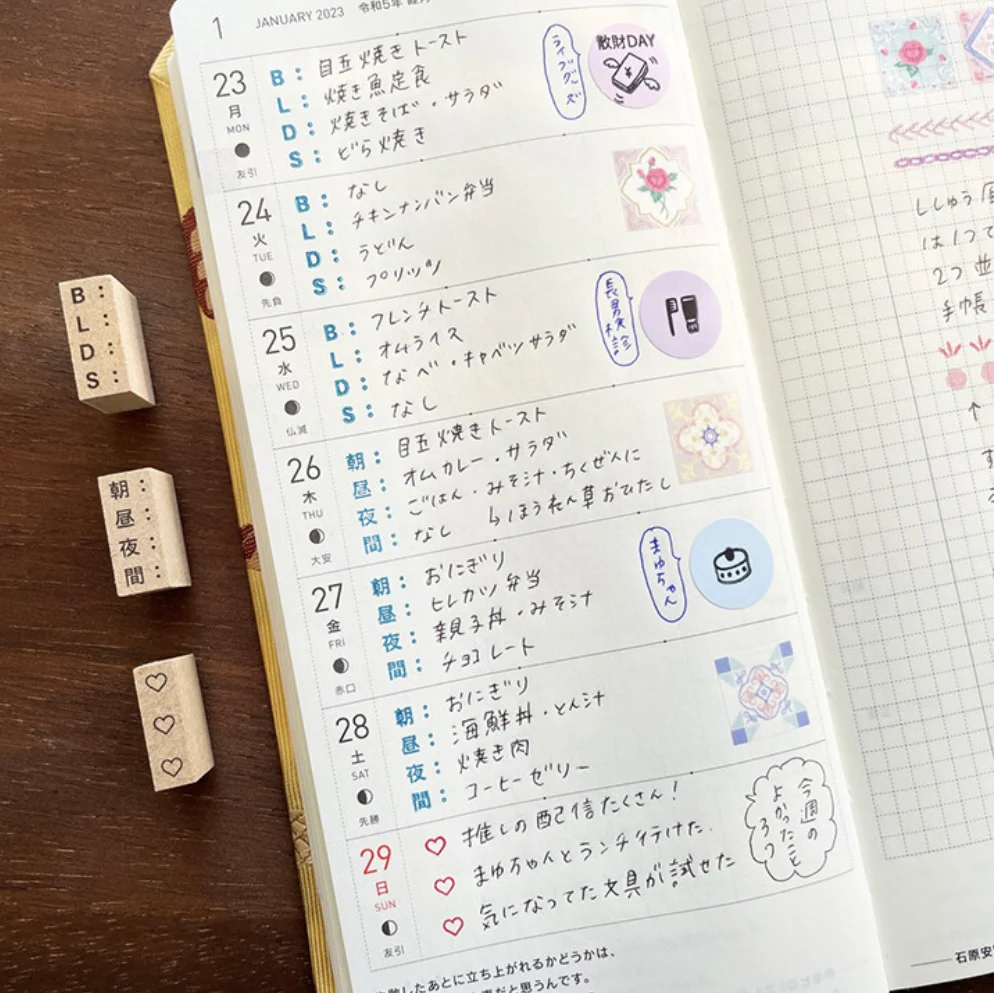 1 JANUARY 2023 令和5年 睦月
23 月 MON 友引
B: 目玉焼きトースト
L: 焼き魚定食
D: 焼きそば・サラダ
S: どら焼き
ライブグッズ
散財DAY
24 火 TUE 先負
B: なし
L: チキンナンバン弁当
D: うどん
S: プリッツ
25 水 WED 仏滅
B: フレンチトースト
L: オムライス
D: なべ・キャベツサラダ
S: なし
長男検診
26 木 THU 大安
朝: 目玉焼きトースト
昼: オムカレー・サラダ
夜: ごはん・みそ汁・ちくぜんに
↳ほうれん草おひたし
間: なし
27 金 FRI 赤口
朝: おにぎり
昼: ヒレカツ弁当
夜: 親子丼・みそ汁
間: チョコレート
まゆちゃん
28 土 SAT 先勝
朝: おにぎり
昼: 海鮮丼・とん汁
夜: 焼き肉
間: コーヒーゼリー
29 日 SUN 友引
♡ 推しの配信たくさん!
♡ まゆちゃんとランチ行けた.
♡ 気になってた文具が試せた
今週の
よかったこと
3つ
したあとに立ち上がれるかどうかは、
だと思うんです。
B:
L:
D:
S:
朝:
昼:
夜:
間:
♡
♡
♡
ししゅう
は1つで
2つ並
手帳
↑
す
石原安